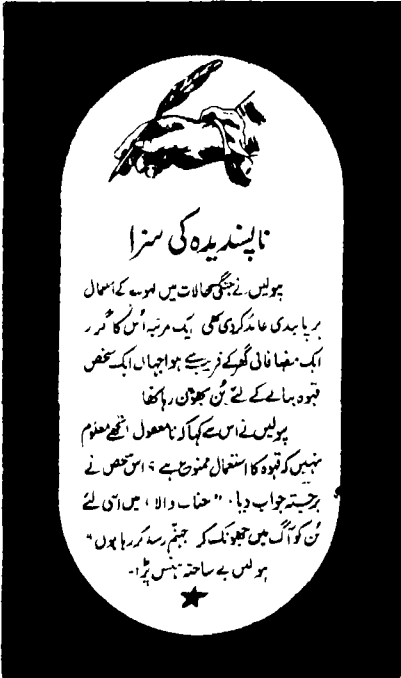 ناپسندیدہ کی سزا
نپولین نے جنگی حالات میں قہوے کے استعمال
پر پابندی عائد کر دی تھی ایک مرتبہ اُس کا گزر
ایک مضافاتی گھر کے قریب سے ہوا جہاں ایک شخص
قہوہ بنانے کے لئے بُن بھون رہا تھا
نپولین نے اس سے کہا کہ نامعقول تجھے معلوم
نہیں کہ قہوہ کا استعمال ممنوع ہے ؟ اس شخص نے
برجستہ جواب دیا ، " جناب والا ، میں اسی لئے
بُن کو آگ میں جھونک کر جہنم رسید کر رہا ہوں "
نپولین بے ساختہ ہنس پڑا ۔